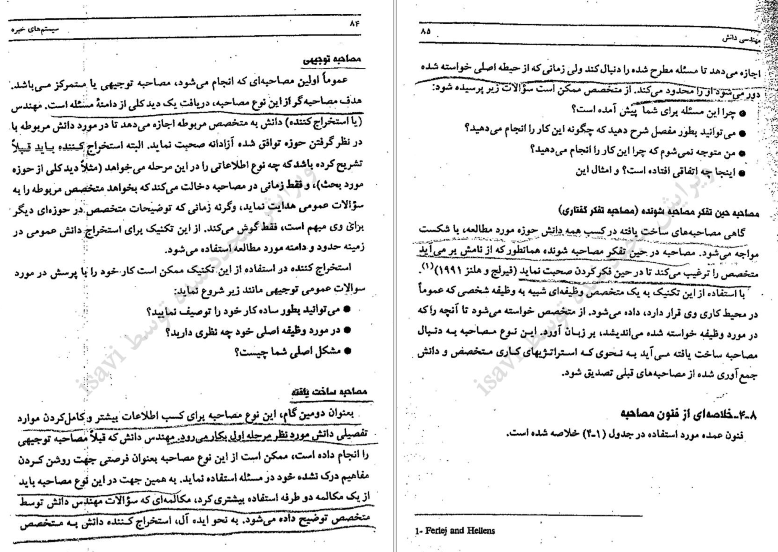 ۸۴
سیستم‌های خبره
مصاحبه توجیهی
عموماً اولین مصاحبه‌ای که انجام می‌شود، مصاحبه توجیهی یا متمرکز می‌باشد.
هدف مصاحبه‌گر از این نوع مصاحبه، دریافت یک دید کلی از دامنهٔ مسئله است. مهندس
(یا استخراج کننده) دانش به متخصص مربوطه اجازه می‌دهد تا در مورد دانش مربوطه با
در نظر گرفتن حوزه توافق شده آزادانه صحبت نماید. البته استخراج کننده باید قبلاً
تشریح کرده باشد که چه نوع اطلاعاتی را در این مرحله می‌خواهد (مثلاً دید کلی از حوزه
مورد بحث)، و فقط زمانی در مصاحبه دخالت می‌کند که بخواهد متخصص مربوطه را به
سؤالات عمومی هدایت نماید، وگرنه زمانی که توضیحات متخصص در حوزه‌ای دیگر
برای وی مبهم است، فقط گوش می‌کند. از این تکنیک برای استخراج دانش عمومی در
زمینه حدود و دامنه مورد مطالعه استفاده می‌شود.
استخراج کننده در استفاده از این تکنیک ممکن است کار خود را با پرسش در مورد
سوالات عمومی توجیهی مانند زیر شروع نماید:
● می‌توانید بطور ساده کار خود را توصیف نمایید؟
● در مورد وظیفه اصلی خود چه نظری دارید؟
● مشکل اصلی شما چیست؟
مصاحبه ساخت یافته
بعنوان دومین گام، این نوع مصاحبه برای کسب اطلاعات بیشتر و کامل‌کردن موارد
تفصیلی دانش مورد نظر مرحله اول بکار می‌رود. مهندس دانش که قبلاً مصاحبه توجیهی
را انجام داده است، ممکن است از این نوع مصاحبه بعنوان فرصتی جهت روشن کردن
مفاهیم درک نشده خود در مسئله استفاده نماید. به همین جهت در این نوع مصاحبه باید
از یک مکالمه دو طرفه استفاده بیشتری کرد، مکالمه‌ای که سؤالات مهندس دانش توسط
متخصص توضیح داده می‌شود. به نحو ایده آل، استخراج کننده دانش به متخصص
مهندسی دانش
۸۵
اجازه می‌دهد تا مسئله مطرح شده را دنبال کند ولی زمانی که از حیطه اصلی خواسته شده
دور می‌شود او را محدود می‌کند. از متخصص ممکن است سؤالات زیر پرسیده شود:
● چرا این مسئله برای شما پیش آمده است؟
● می‌توانید بطور مفصل شرح دهید که چگونه این کار را انجام می‌دهید؟
● من متوجه نمی‌شوم که چرا این کار را انجام می‌دهید؟
● اینجا چه اتفاقی افتاده است؟ و امثال این
مصاحبه حین تفکر مصاحبه شونده (مصاحبه تفکر گفتاری)
گاهی مصاحبه‌های ساخت یافته در کسب همه دانش حوزه مورد مطالعه، با شکست
مواجه می‌شود. مصاحبه در حین تفکر مصاحبه شونده همانطور که از نامش بر می‌آید
متخصص را ترغیب می‌کند تا در حین فکر کردن صحبت نماید (فیرلج و هلنز ۱۹۹۱)(۱).
با استفاده از این تکنیک به یک متخصص وظیفه‌ای شبیه به وظیفه شخصی که عموماً
در محیط کاری وی قرار دارد، داده می‌شود. از متخصص خواسته می‌شود تا آنچه را که
در مورد وظیفه خواسته شده می‌اندیشد، بر زبان آورد. این نوع مصاحبه به دنبال
مصاحبه ساخت یافته می‌آید به نحوی که استراتژیهای کاری متخصص و دانش
جمع‌آوری شده از مصاحبه‌های قبلی تصدیق شود.
۸-۴-خلاصه‌ای از فنون مصاحبه
فنون عمده مورد استفاده در جدول (۱-۴) خلاصه شده است.
1- Ferlej and Hellens